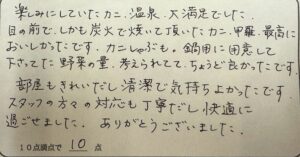 楽しみにしていたカニ、温泉、大満足でした。
目の前で、しかも炭火で焼いて頂いたカニ、甲羅、最高に
おいしかったです。カニしゃぶも。鍋用に用意して
下さってた野菜の量、考えられてて、ちょうど良かったです。
部屋もきれいだし清潔で気持ちよかったです
スタッフの方々の対応も丁寧だし快適に
過ごせました。ありがとうございました。
10点満点で 10 点